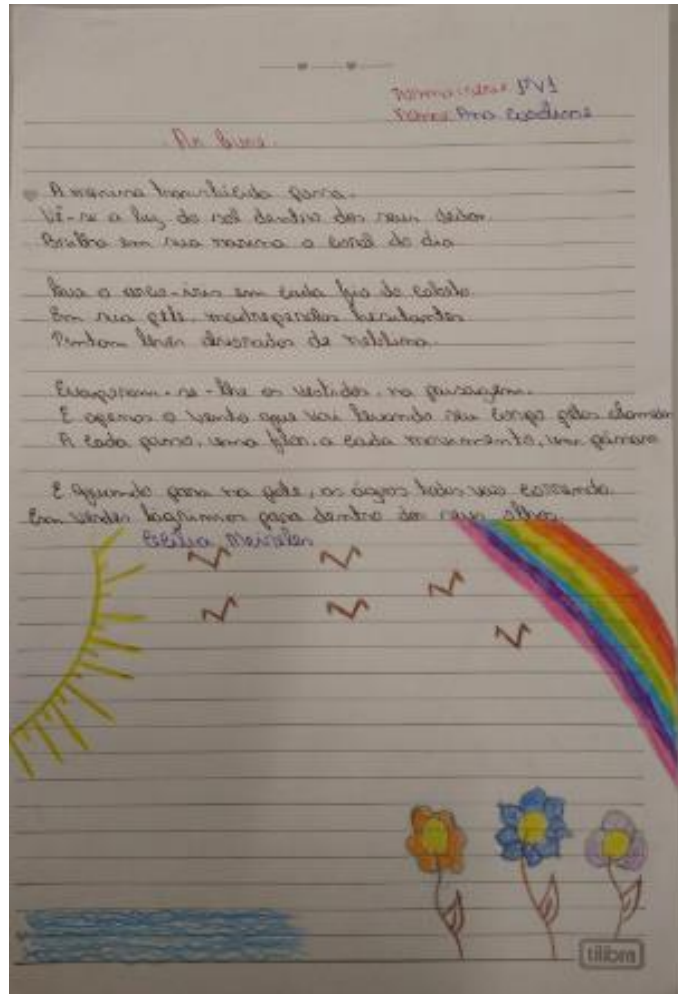 Turma/série 1ºV1
Nome: Ana
Ar livre.
A menina translúcida passa.
Vê-se a luz do sol dentro dos seus dedos.
Brilha em sua narina o coral do dia.
Leva o arco-íris em cada fio do cabelo.
Em sua pele, madrepérolas hesitantes
Pintam leves alvoradas de neblina.
Evaporam-se-lhe os vestidos, na paisagem.
É apenas o vento que vai levando seu corpo pelas alamedas
A cada passo, uma flor, a cada movimento, um pássaro
E quando para na pele, as águas todas vão correndo.
Em verdes lágrimas para dentro dos seus olhos.
Cecília Meireles
tilibra